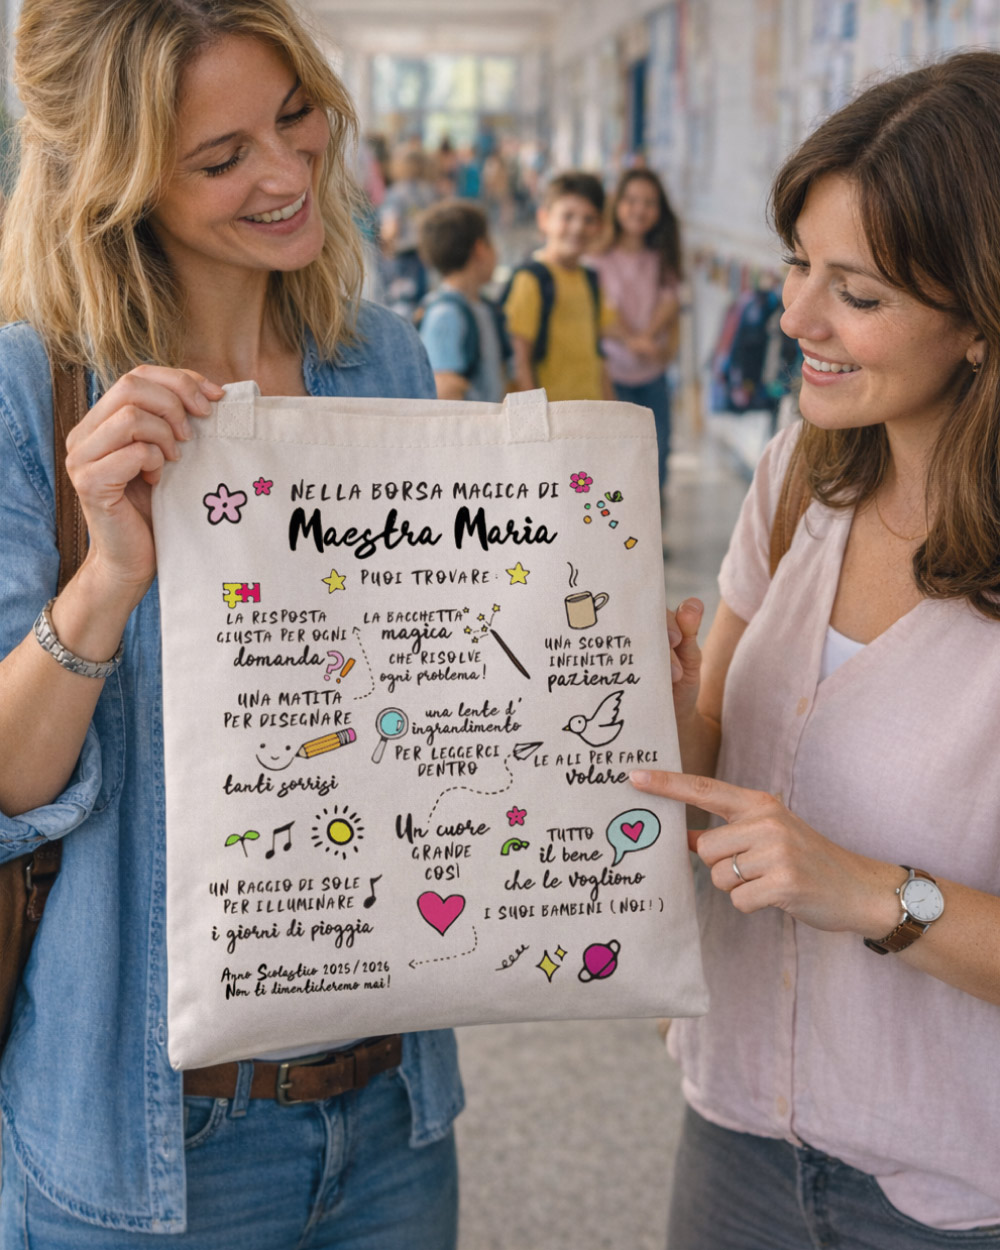 NELLA BORSA MAGICA DI
Maestra Maria
PUOI TROVARE:
LA RISPOSTA
GIUSTA PER OGNI
domanda
LA BACCHETTA
magica
CHE RISOLVE
ogni problema!
UNA SCORTA
INFINITA DI
pazienza
UNA MATITA
PER DISEGNARE
tanti sorrisi
una lente d'
ingrandimento
PER LEGGERCI
DENTRO
LE ALI PER FARCI
volare
UN RAGGIO DI SOLE
PER ILLUMINARE
i giorni di pioggia
Un cuore
GRANDE
COSÌ
TUTTO
il bene
che le vogliono
I SUOI BAMBINI (NOI!)
Anno Scolastico 2025/2026
Non ti dimenticheremo mai!